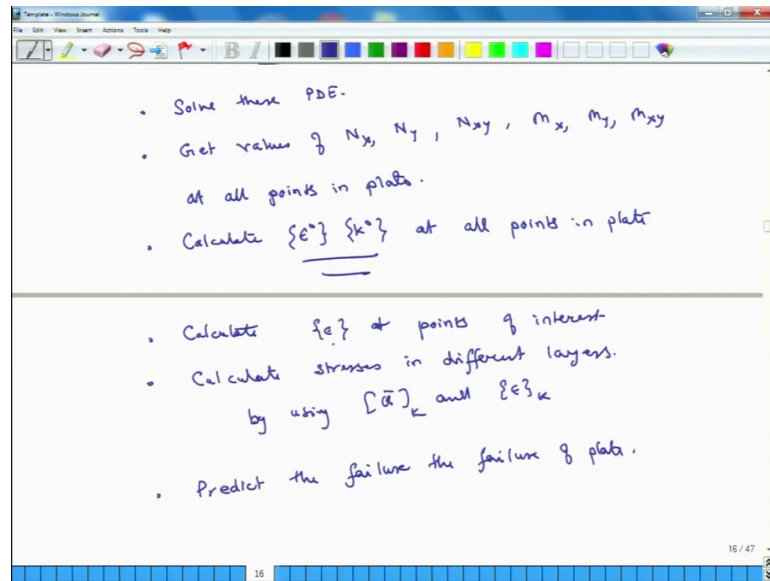 Template - Windows Journal
File Edit View Insert Actions Tools Help
B I
• Solve these PDE.
• Get values of Nx, Ny, Nxy, Mx, My, Mxy
at all points in plate.
• Calculate {ε°} {k°} at all points in plate
• Calculate {ε} at points of interest
• Calculate stresses in different layers.
by using [Q̄]K and {ε}K
• Predict the failure the failure of plate.
16 / 47
16